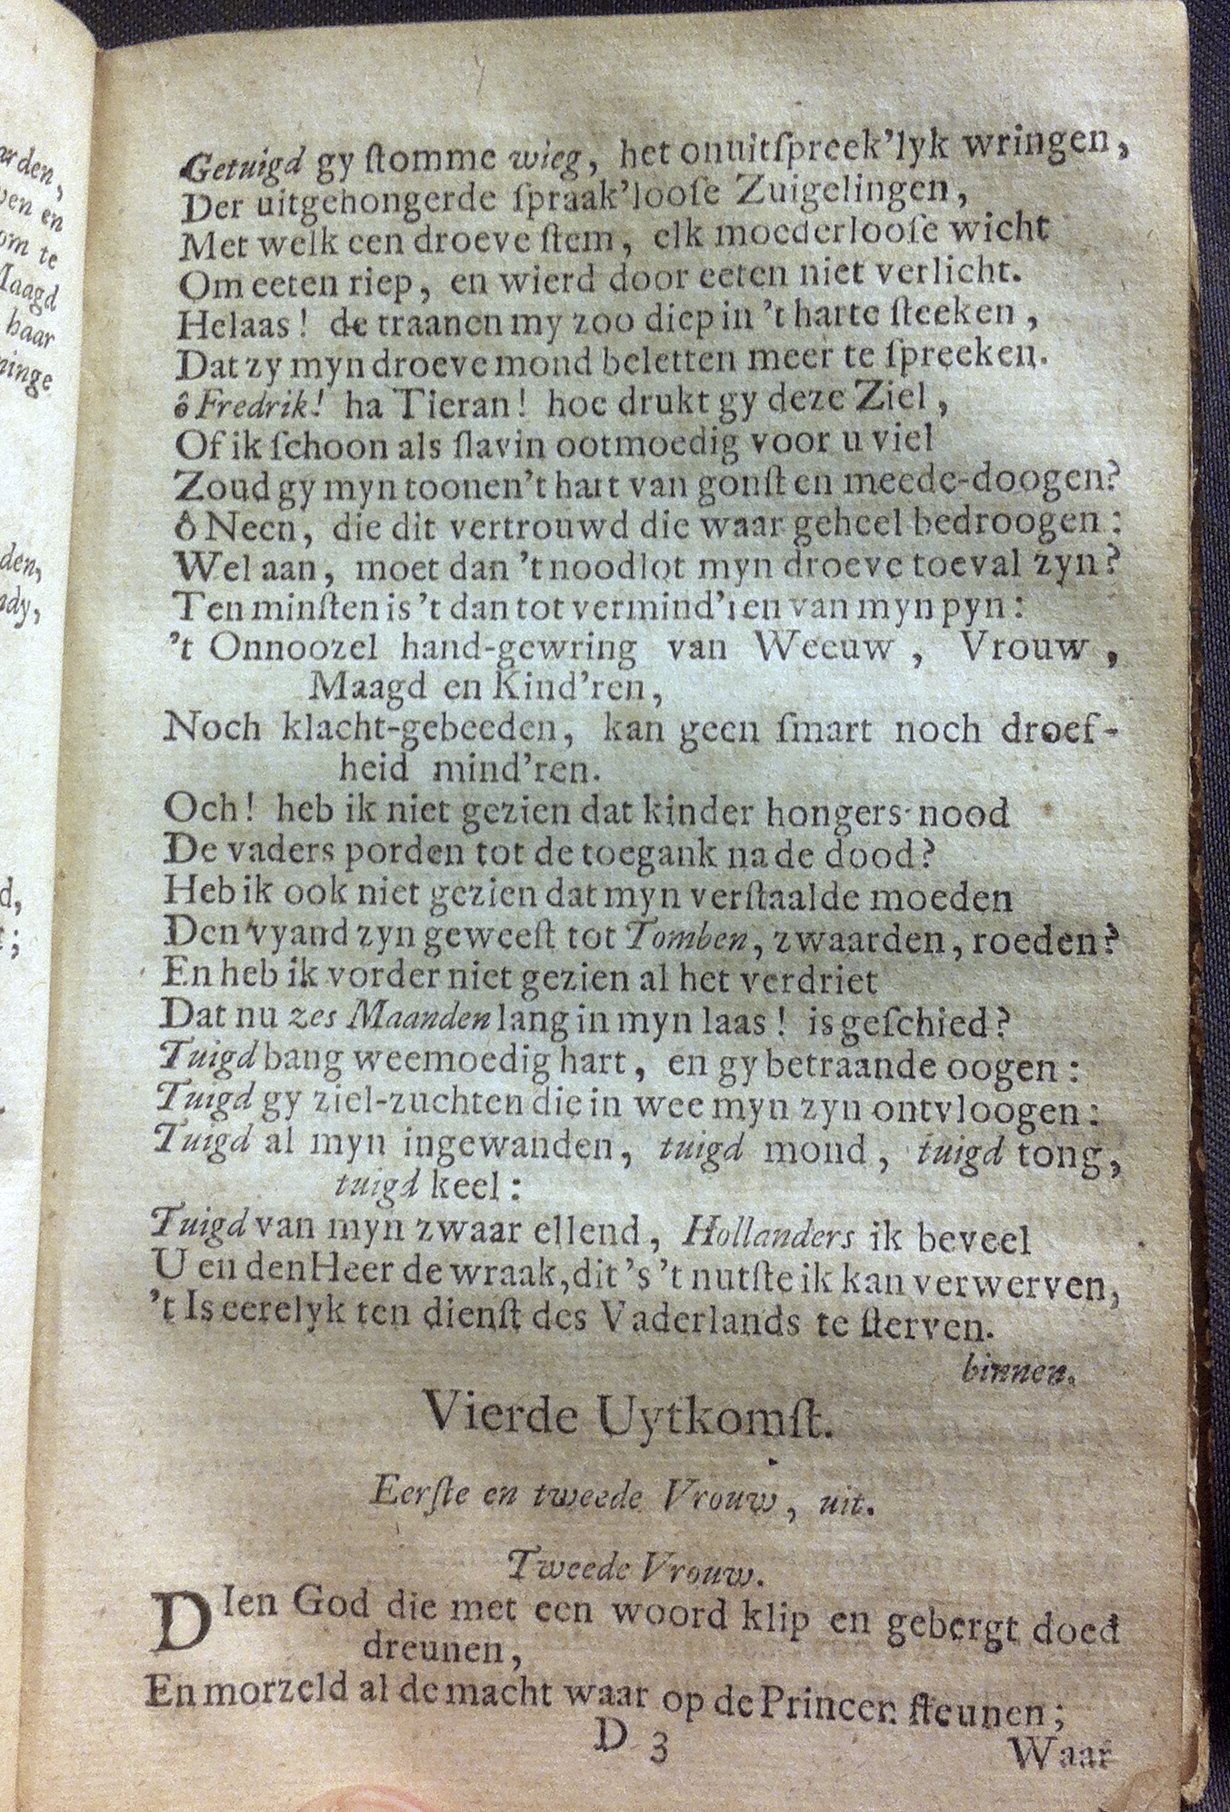 Getuigd gy ſtomme wieg, het onuitſpreek'lyk wringen,
Der uitgehongerde ſpraak'looſe Zuigelingen,
Met welk een droeve ſtem, elk moederlooſe wicht
Om eeten riep, en wierd door eeten niet verlicht.
Helaas! de traanen my zoo diep in 't harte ſteeken,
Dat zy myn droeve mond beletten meer te ſpreeken.
ô Fredrik! ha Tieran! hoe drukt gy deze Ziel,
Of ik ſchoon als ſlavin ootmoedig voor u viel
Zoud gy myn toonen 't hart van gonſt en meede-doogen?
ô Neen, die dit vertrouwd die waar geheel bedroogen:
Wel aan, moet dan 't noodlot myn droeve toeval zyn?
Ten minſten is 't dan tot vermind'ren van myn pyn:
't Onnoozel hand-gewring van Weeuw, Vrouw,
Maagd en Kind'ren,
Noch klacht-gebeeden, kan geen ſmart noch droef-
heid mind'ren.
Och! heb ik niet gezien dat kinder hongers-nood
De vaders porden tot de toegank na de dood?
Heb ik ook niet gezien dat myn verſtaalde moeden
Den vyand zyn geweeſt tot Tomben, zwaarden, roeden?
En heb ik vorder niet gezien al het verdriet
Dat nu zes Maanden lang in myn laas! is geſchied?
Tuigd bang weemoedig hart, en gy betraande oogen:
Tuigd gy ziel-zuchten die in wee myn zyn ontvloogen:
Tuigd al myn ingewanden, tuigd mond, tuigd tong,
tuigd keel:
Tuigd van myn zwaar ellend, Hollanders ik beveel
U en den Heer de wraak, dit 's 't nutſte ik kan verwerven,
't Is eerelyk ten dienſt des Vaderlands te ſterven.
binnen.
Vierde Uytkomſt.
Eerſte en tweede Vrouw, uit.
Tweede Vrouw.
DIen God die met een woord klip en gebergt doed
dreunen,
En morzeld al de macht waar op de Princen ſteunen;
D 3
Waar